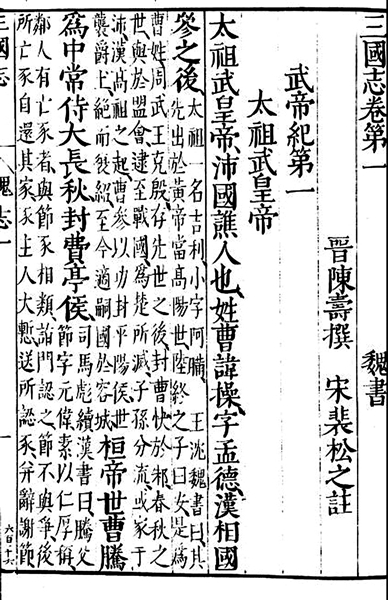 三國志卷第一 魏書
晉陳壽撰 宋裴松之註
武帝紀第一
太祖武皇帝
太祖武皇帝沛國譙人也姓曹諱操字孟德漢相國
參之後
太祖一名吉利小字阿瞞 王沈魏書曰其
先出於黃帝當高陽世陸終之子曰安是爲
曹姓周武王克殷存先世之後封曹俠於邾春秋之
世與於盟會逮至戰國爲楚所滅子孫分流或家于
沛漢高祖之起曹參以功封平陽侯世
襲爵土絕而復紹至今適嗣國於容城
桓帝世曹騰
爲中常侍大長秋封費亭侯
司馬彪續漢書曰騰父
節字元偉素以仁厚稱
鄰人有亡豕者與節豕相類詣門認之節不與爭後
所亡豕自還其家豕主人大慙送所認豕并辭謝節
三國志 魏志一 一 六百十六